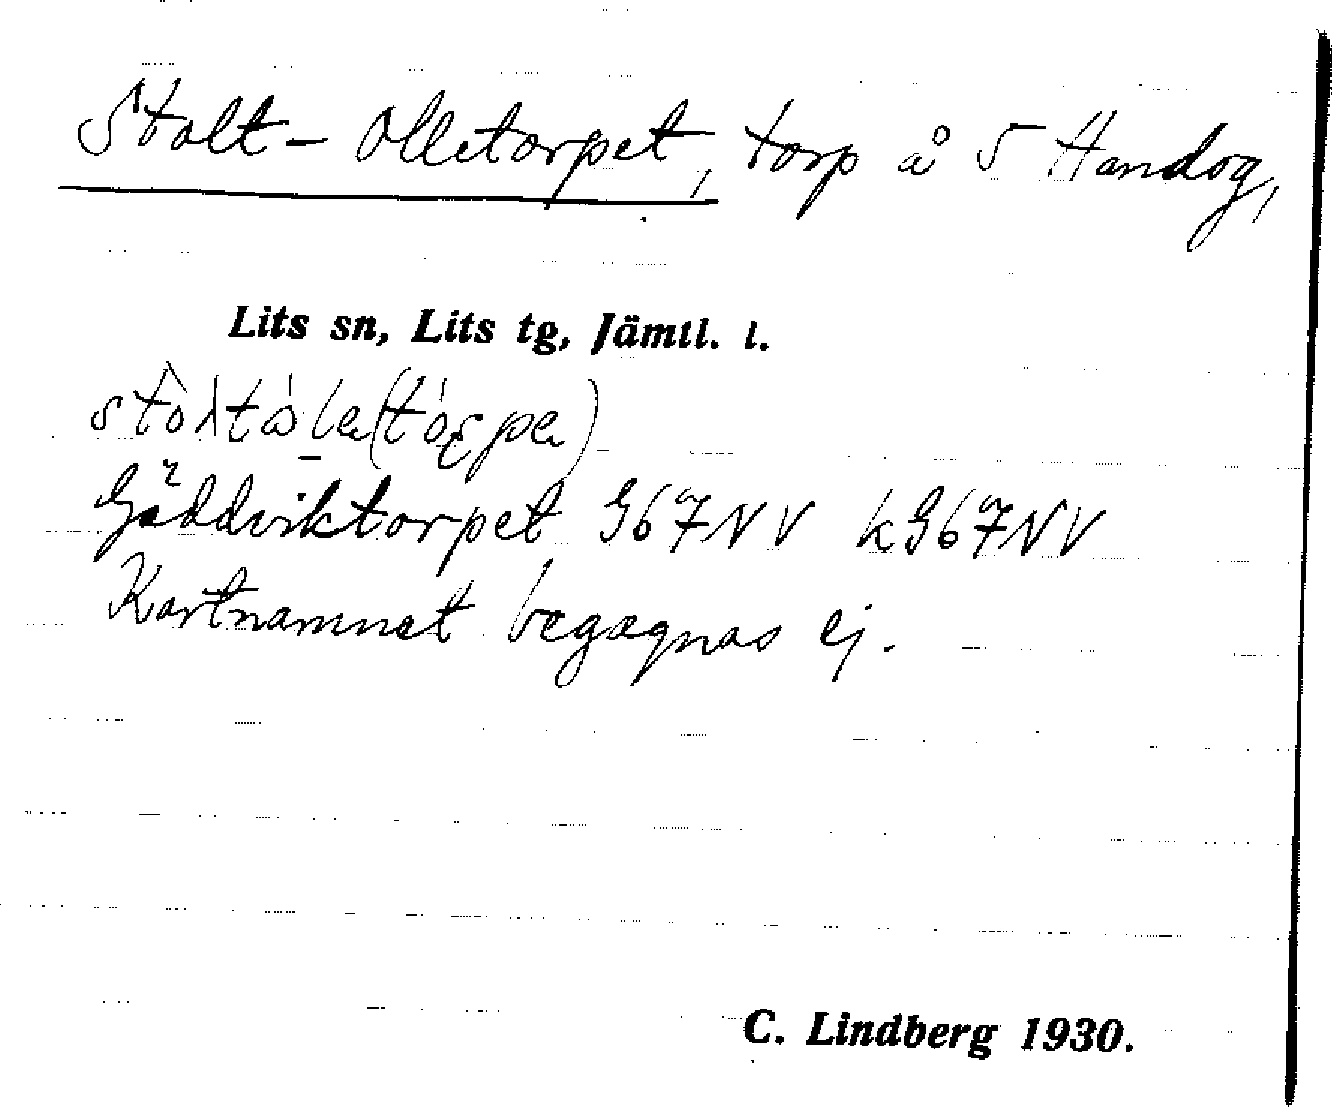 Stolt-Olletorpet, torp å 5 Handog,
Lits sn, Lits tg, Jämtl. l.
Gäddviktorpet G67NV kG67NV
Kartnamnet begagnas ej.
C. Lindberg 1930.